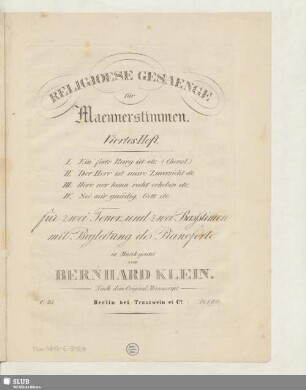 RELIGIOESE GESAENGE
für
Maennerstimmen.
Viertes Heft.
I. Ein feste Burg ist etc. (Choral.)
II. Der Herr ist unsre Zuversicht etc.
III. Herr wer kann recht erheben etc.
IV. Sei mir gnädig, Gott etc.
für zwei Tenor und zwei Bassstimen
mit Begleitung des Pianoforte
in Musik gesetzt
von
BERNHARD KLEIN.
Nach dem Original Manuscript
Berlin bei Trautwein et Co.
SLUB